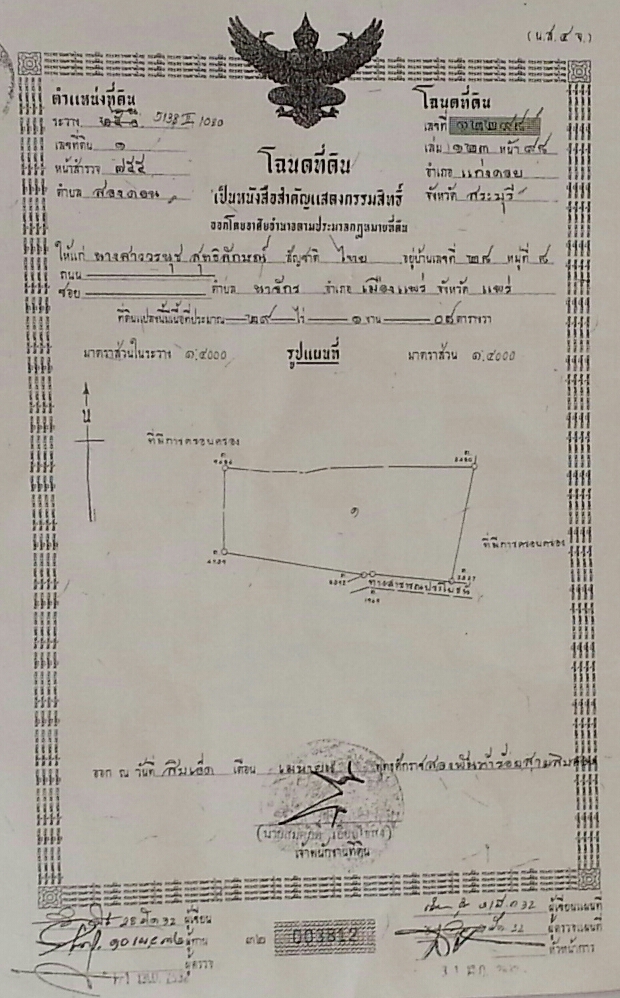 (น.ส.๔ จ.)
ตำแหน่งที่ดิน
ระวาง 5138 II 1020
เลขที่ดิน ๑
หน้าสำรวจ ๗๕๕
ตำบล สองคอน
โฉนดที่ดิน
เลขที่ ๑๒๒๙๘
เล่ม ๑๒๓ หน้า ๙๘
อำเภอ แก่งคอย
จังหวัด สระบุรี
โฉนดที่ดิน
เป็นหนังสือสำคัญแสดงกรรมสิทธิ์
ออกโดยอาศัยอำนาจตามประมวลกฎหมายที่ดิน
ให้แก่ นางสาววรนุช สุทธิลักษณ์ สัญชาติ ไทย อยู่บ้านเลขที่ ๒๘ หมู่ที่ ๘
ถนน
ซอย ตำบล นาจักร อำเภอ เมืองแพร่ จังหวัด แพร่
ที่ดินแปลงนี้มีเนื้อที่ประมาณ ๒๙ ไร่ ๑ งาน ๐๘ ตารางวา
มาตราส่วนในระวาง ๑:๔๐๐๐ รูปแผนที่ มาตราส่วน ๑:๔๐๐๐
น
ที่มีการครอบครอง
๑
ที่มีการครอบครอง
ทางสาธารณประโยชน์
ออก ณ วันที่ สิบเอ็ด เดือน เมษายน พุทธศักราช สองพันห้าร้อยสามสิบสอง
เจ้าพนักงานที่ดิน
ผู้เขียน
ผู้ทาน
ผู้ตรวจ
๓๒ 003812
ผู้เขียนแผนที่
ผู้ตรวจแผนที่
หัวหน้าการ